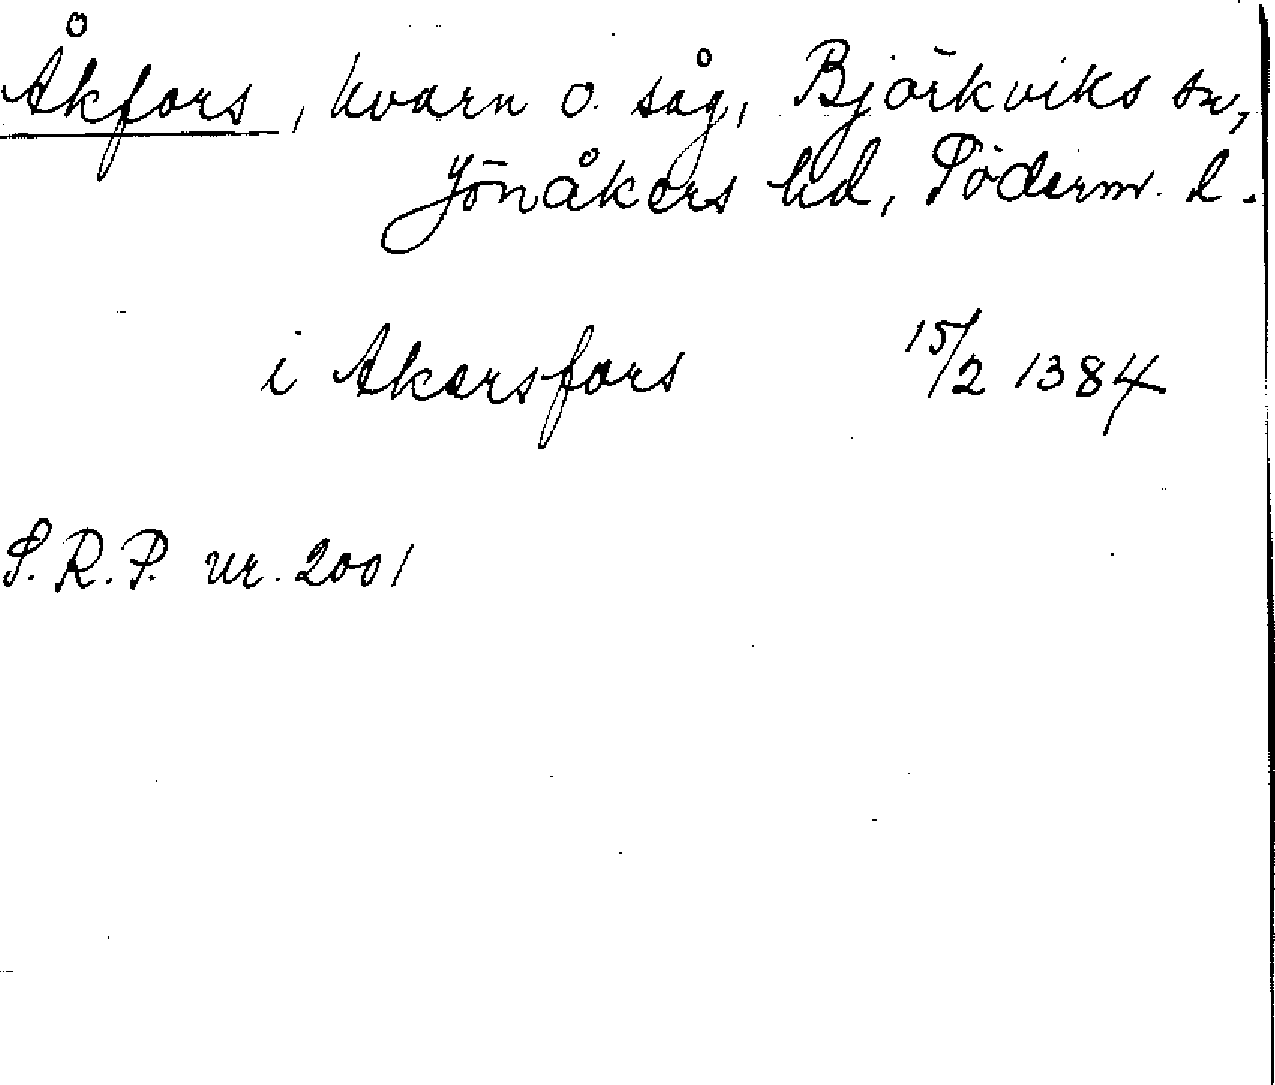 Åkfors, kvarn o. såg, Björkviks sn,
Jönåkers hd, Söderm. l.
i Akersfors 15/2 1384
S.R.P. nr. 2001